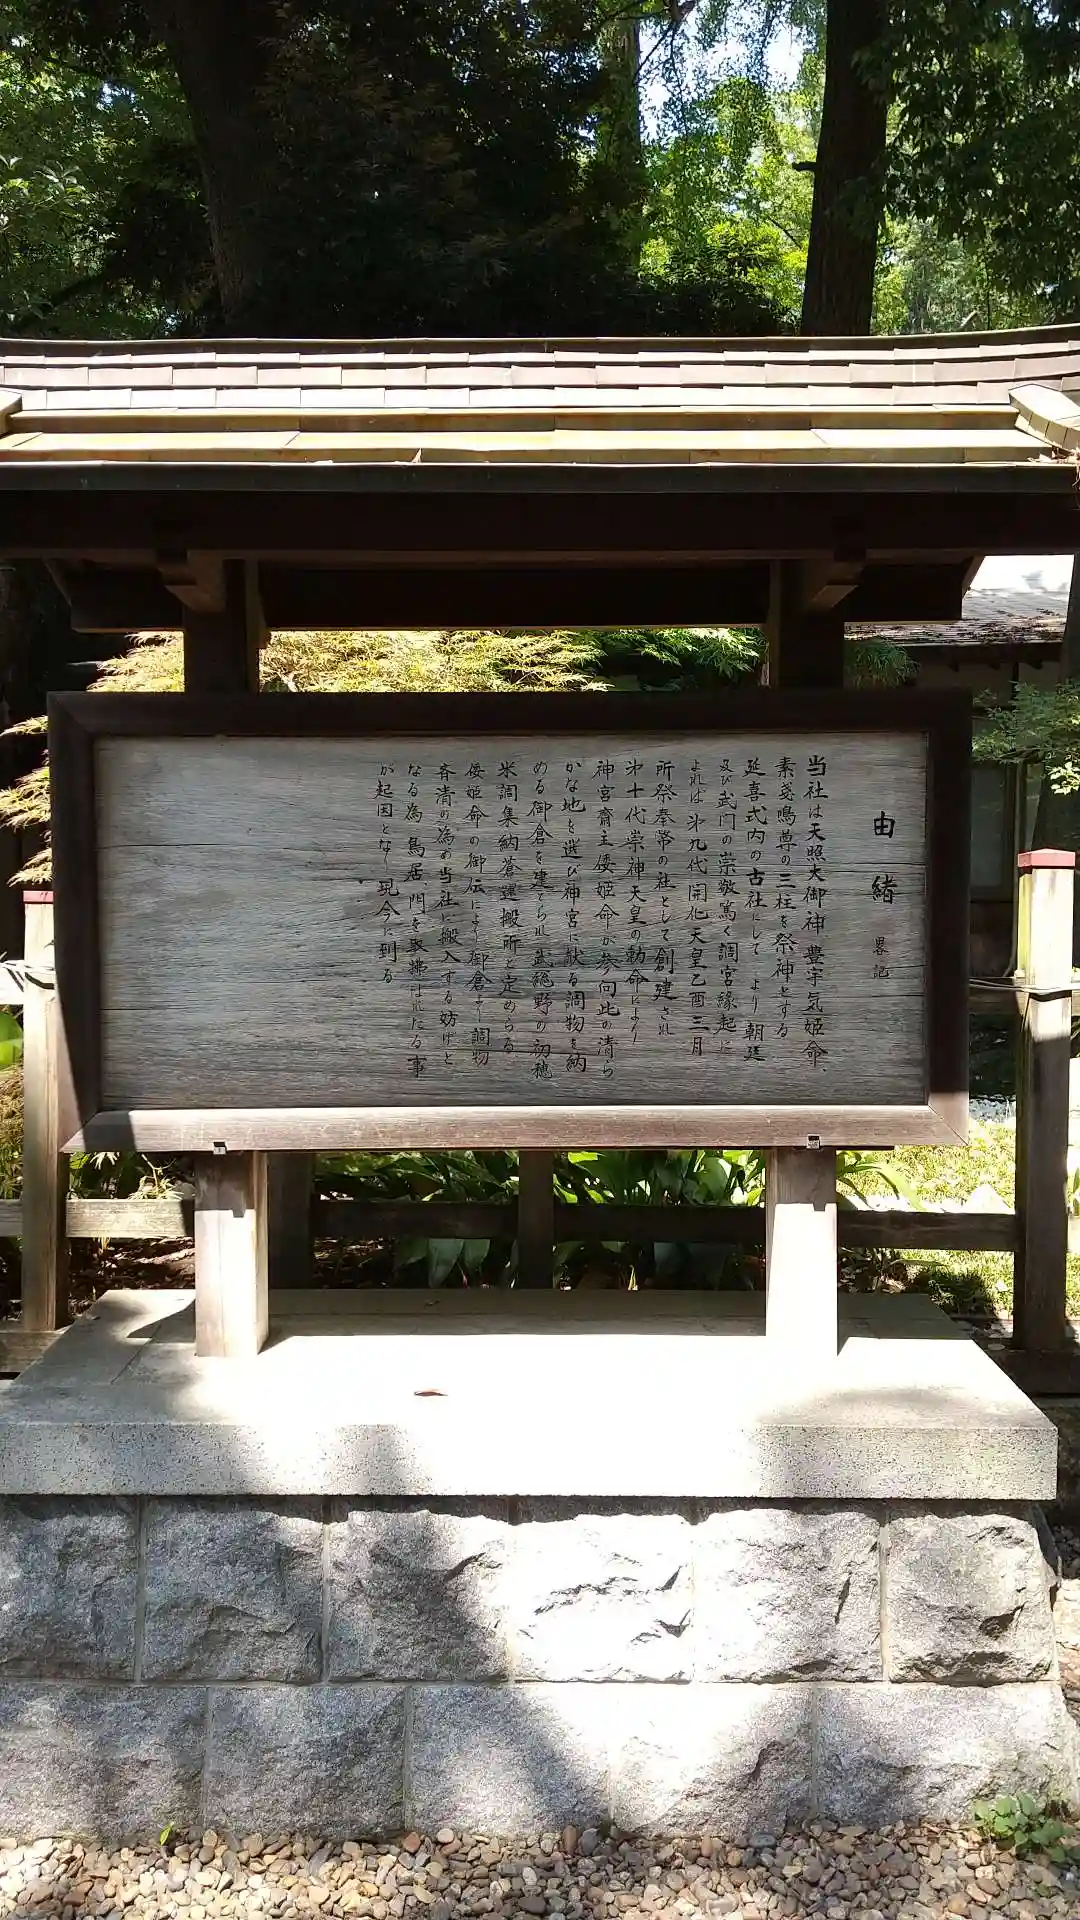 由緒 畧記
当社は天照大御神 豊宇気姫命、
素戔鳴尊の三柱を祭神とする
延喜式内の古社にして より朝廷
及び武門の崇敬篤く調宮縁起に
よれば 第九代開化天皇乙酉三月
所祭奉幣の社として創建され
第十代崇神天皇の勅命により
神宮齋主倭姫命が参向此の清ら
かな地を選び神宮に献る調物を納
める御倉を建てられ武蔵野の初穂
米調集納蒼運搬所と定めらる
倭姫命の御伝により御倉より調物
斉清の為め当社に搬入する妨げと
なる為、鳥居、門を取拂はれたる事
が起因となり現今に到る